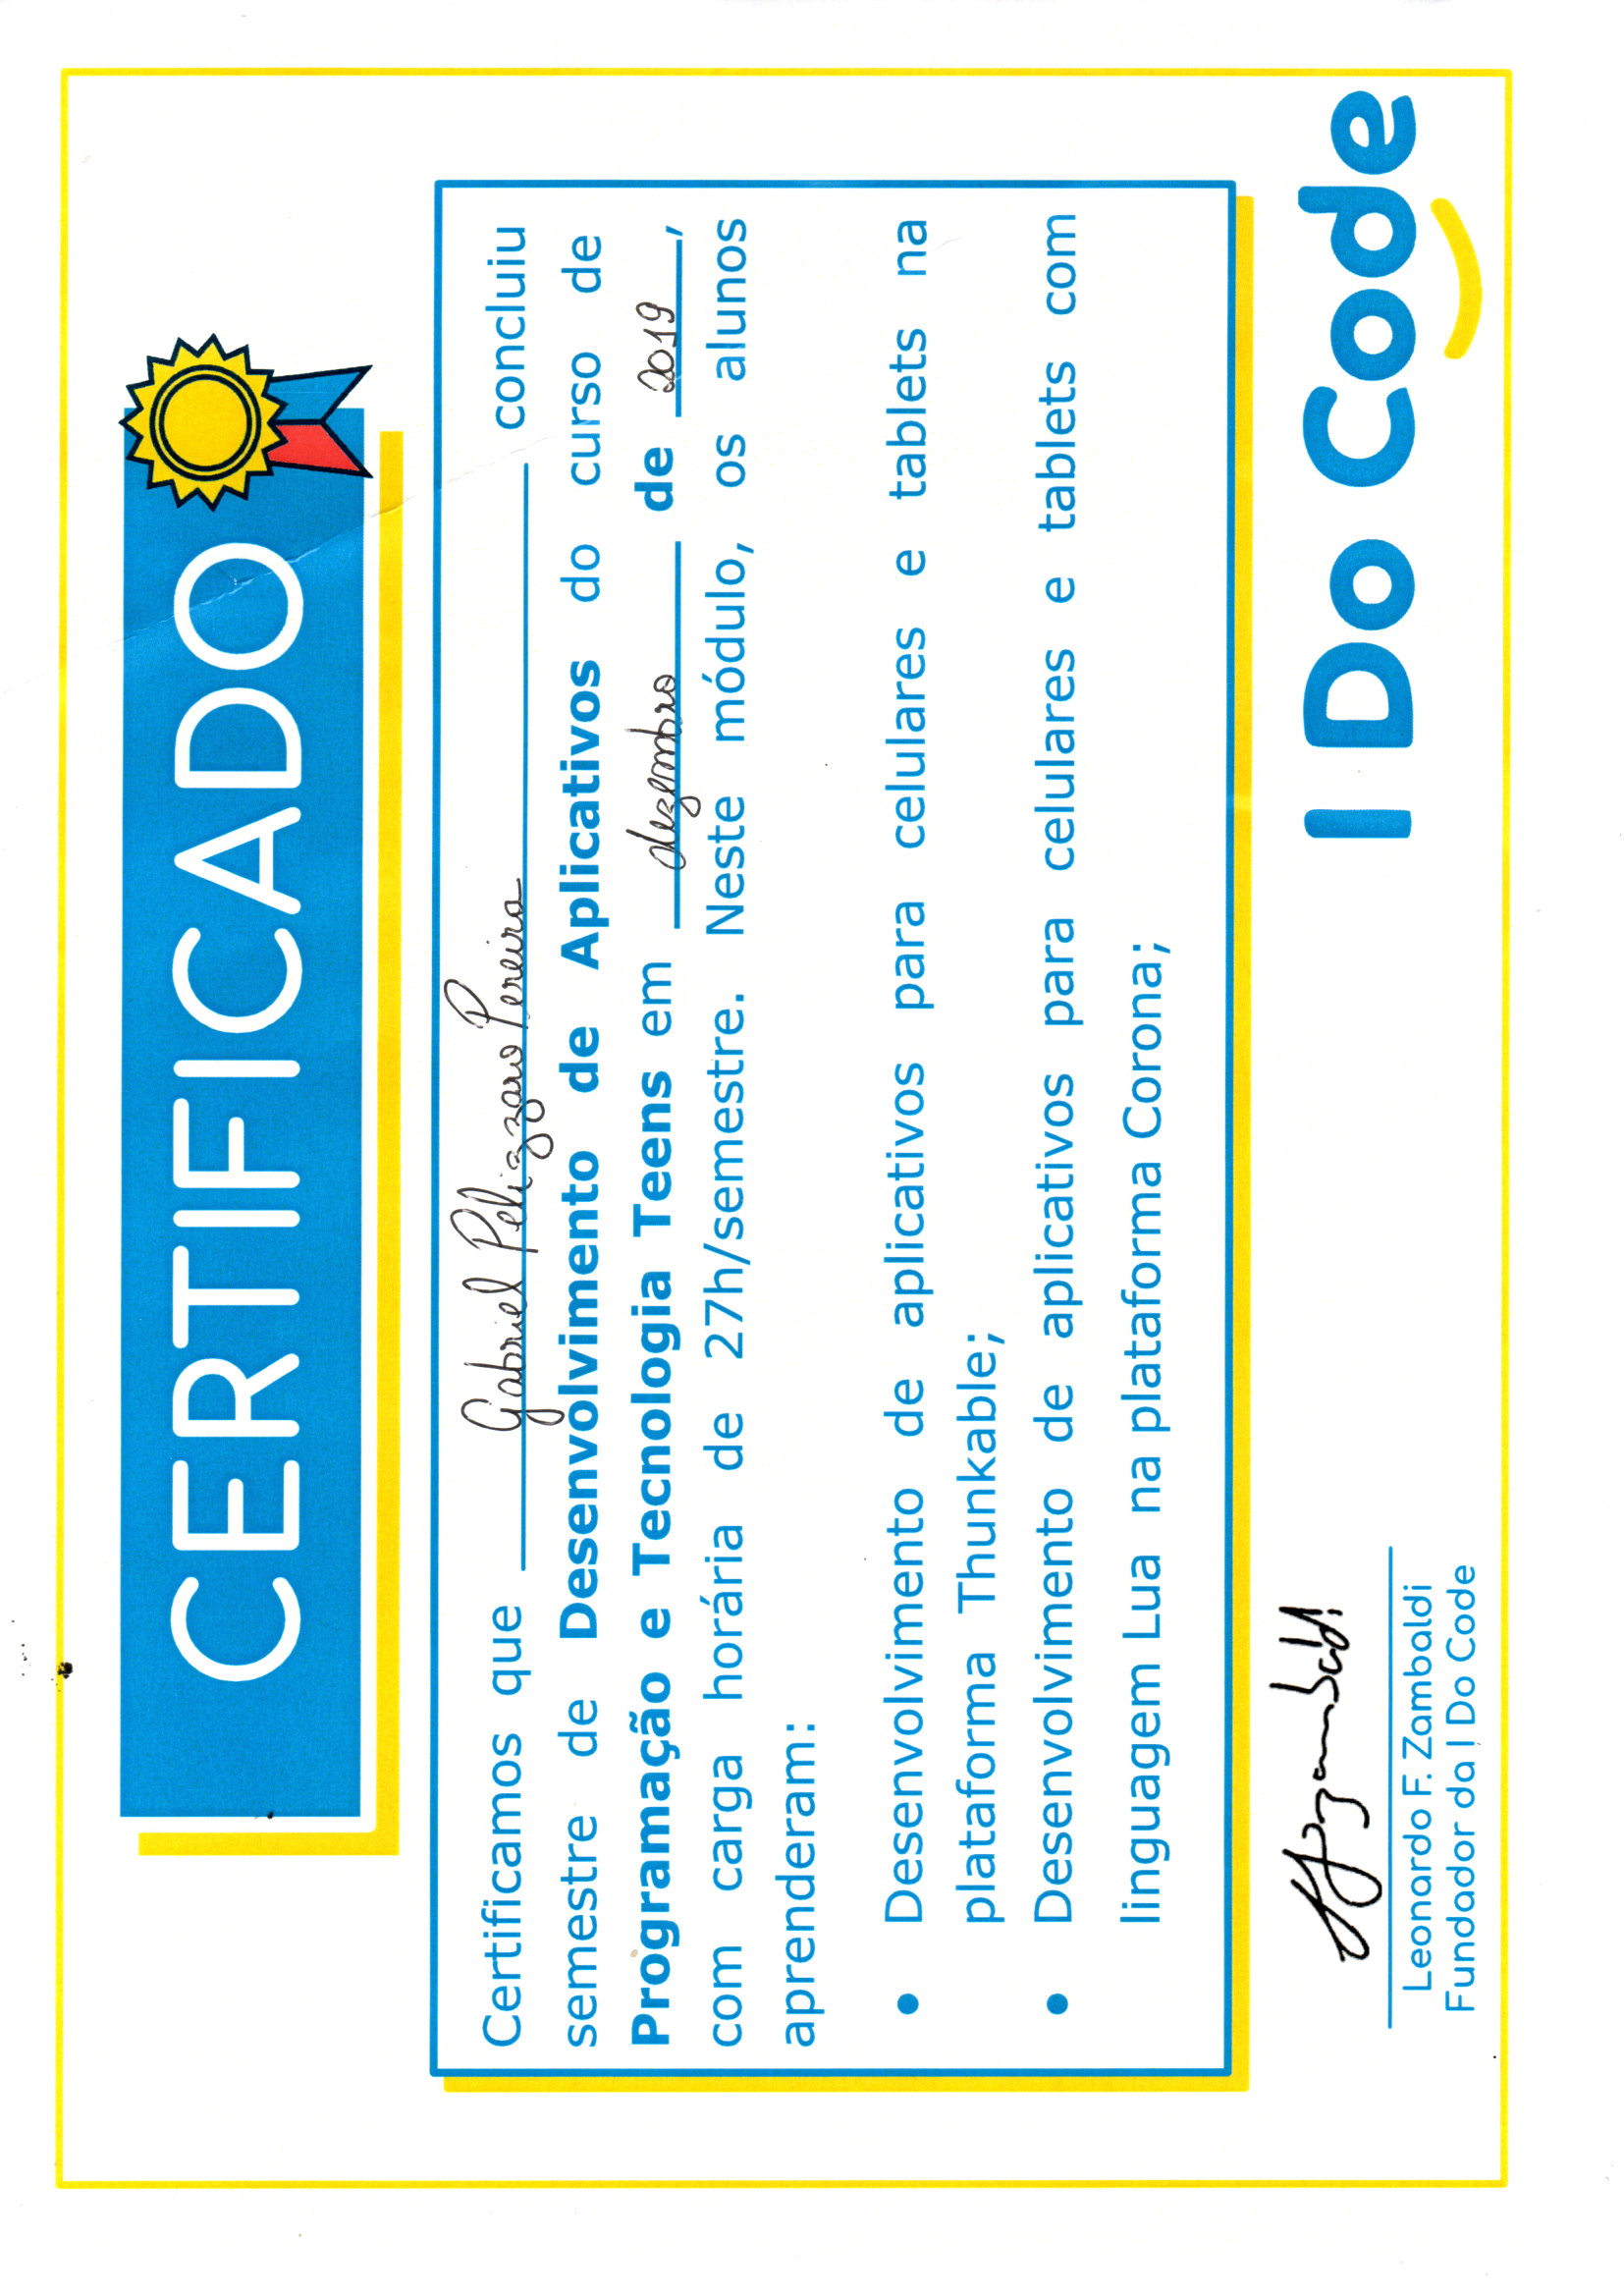 CERTIFICADO
Certificamos que Gabriel Pelizzaro Pereira concluiu
semestre de Desenvolvimento de Aplicativos do curso de
Programação e Tecnologia Teens em dezembro de 2019,
com carga horária de 27h/semestre. Neste módulo, os alunos
aprenderam:
• Desenvolvimento de aplicativos para celulares e tablets na
plataforma Thunkable;
• Desenvolvimento de aplicativos para celulares e tablets com
linguagem Lua na plataforma Corona;
Leonardo F. Zambaldi
Fundador da I Do Code
I Do Code